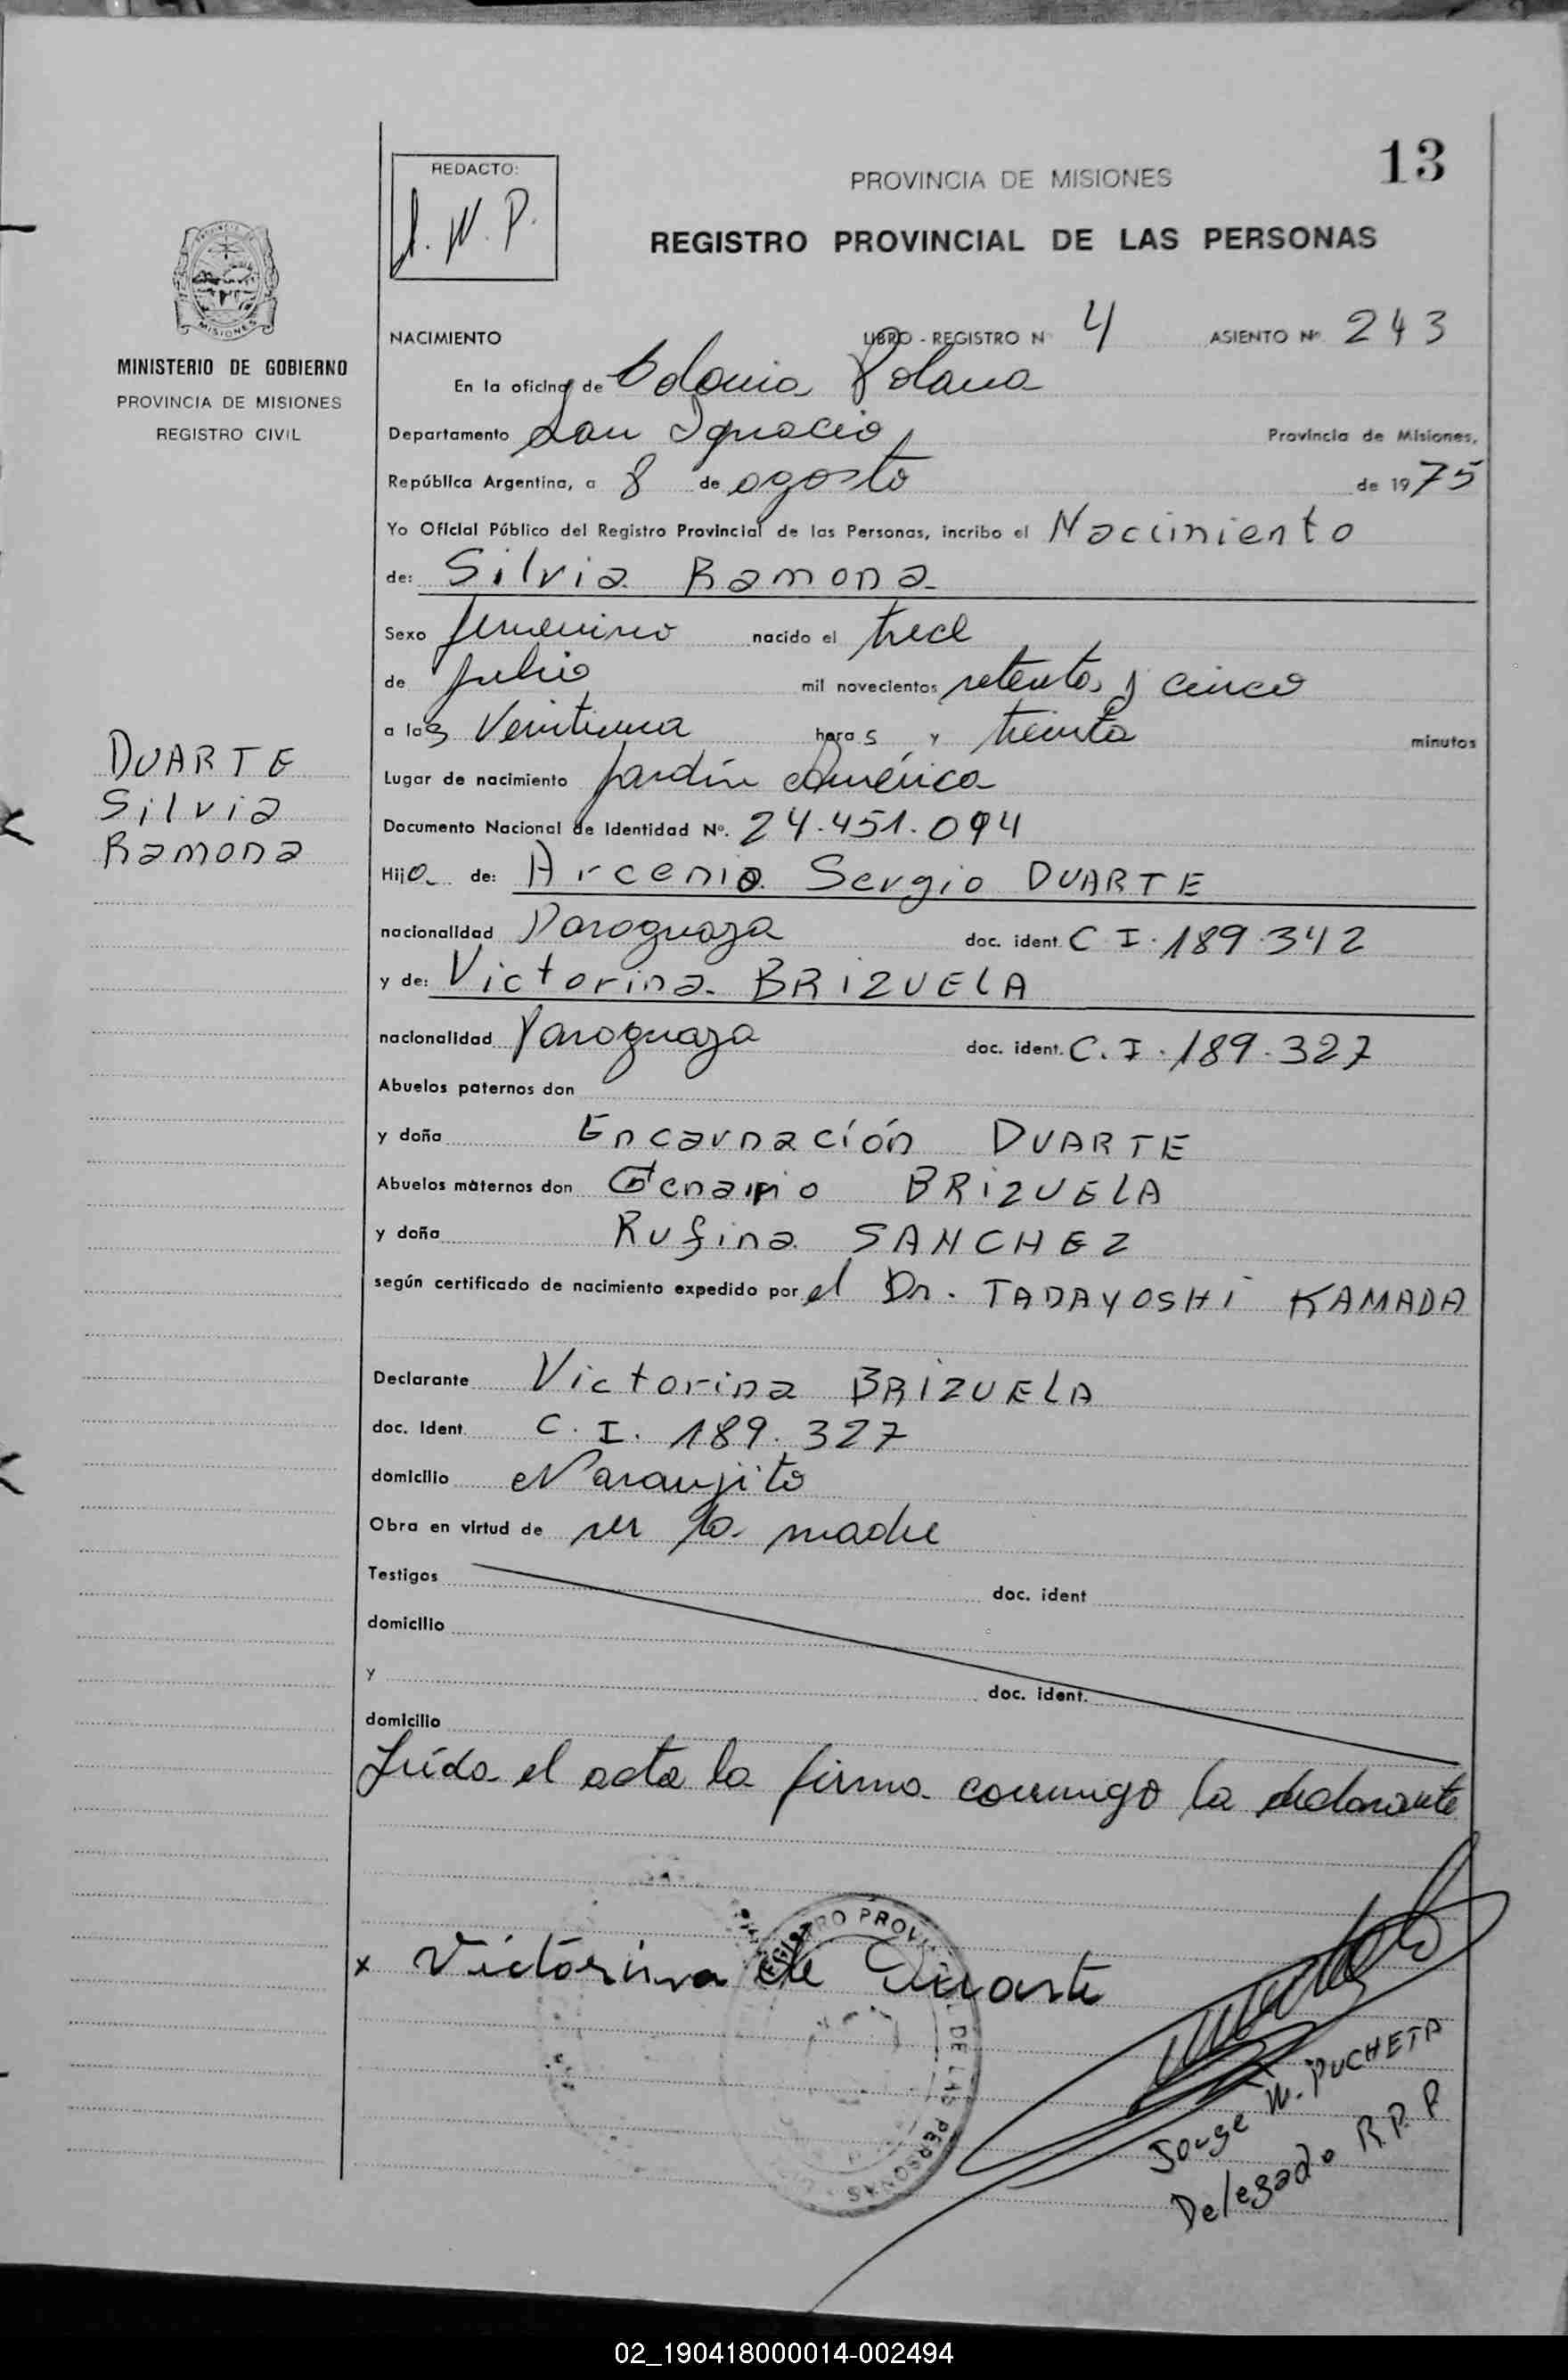 13
REDACTO:
J. W. P.
PROVINCIA DE MISIONES
REGISTRO PROVINCIAL DE LAS PERSONAS
MISIONES
MINISTERIO DE GOBIERNO
PROVINCIA DE MISIONES
REGISTRO CIVIL
NACIMIENTO LIBRO - REGISTRO Nº 4 ASIENTO Nº 243
En la oficina de Colonia Polana
Departamento San Ignacio, Provincia de Misiones,
República Argentina, a 8 de agosto de 1975
Yo Oficial Público del Registro Provincial de las Personas, incribo el Nacimiento
de: Silvia Ramona
Sexo femenino nacido el trece
de julio mil novecientos setenta y cinco
a las Veintiuna horas y treinta minutos
DUARTE
Silvia
Ramona
Lugar de nacimiento Jardín América
Documento Nacional de Identidad Nº. 24.451.094
Hija de: Arcenio Sergio DUARTE
nacionalidad Paraguaya doc. ident. C I. 189.342
y de: Victorina BRIZUELA
nacionalidad Paraguaya doc. ident. C. I. 189.327
Abuelos paternos don
y doña Encarnación DUARTE
Abuelos maternos don Genario BRIZUELA
y doña Rufina SANCHEZ
según certificado de nacimiento expedido por el Dr. TADAYOSHI KAMADA
Declarante Victorina BRIZUELA
doc. Ident. C. I. 189.327
domicilio Naranjito
Obra en virtud de ser la madre
Testigos doc. ident
domicilio
y doc. ident.
domicilio
Leída el acta la firma conmigo la declarante
x Victorina de Duarte
REGISTRO PROVINCIAL DE LAS PERSONAS
Jorge W. PUCHETA
Delegado R.P.P
02_190418000014-002494